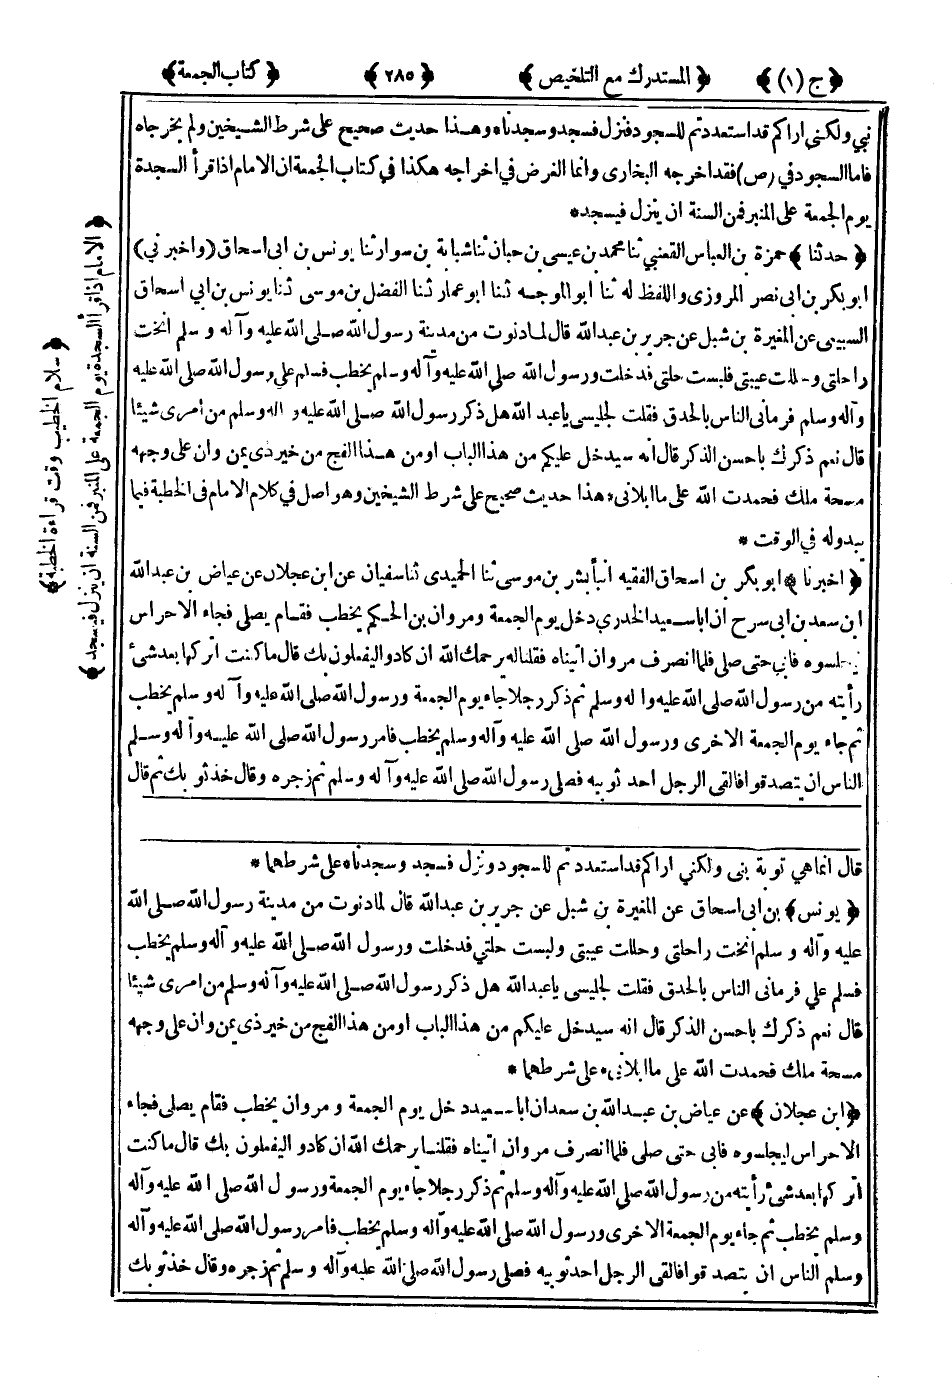 ﴿ ج (١) ﴾ ﴿ المستدرك مع التلخيص ﴾ ﴿ ٢٨٥ ﴾ ﴿ كتاب الجمعة ﴾
نبي ولكني اراكم قد استعددتم للسجود فنزل فسجد وسجدناه وهذا حديث صحيح على شرط الشيخين ولم يخرجاه
فاما السجود في (ص) فقد اخرجه البخارى وانما الغرض في اخراجه هكذا في كتاب الجمعة ان الامام اذا قرأ السجدة
يوم الجمعة على المنبر فمن السنة ان ينزل فيسجد*
﴿ حدثنا ﴾ حمزة بن العباس القعنبي ثنا محمد بن عيسى بن حبان ثنا شبابة بن سوار ثنا يونس بن ابى اسحاق (واخبرني)
ابو بكر بن ابى نصر المروزى واللفظ له ثنا ابو الموجه ثنا ابو عمار ثنا الفضل بن موسى ثنا يونس بن ابي اسحاق
السبيعى عن المغيرة بن شبل عن جرير بن عبدالله قال لما دنوت من مدينة رسول الله صلى الله عليه وآله وسلم انخت
راحلتى وحللت عيبتى فلبست حلتى فدخلت ورسول الله صلي الله عليه وآله وسلم يخطب فسلم علي رسول الله صلى الله عليه
وآله وسلم فرمانى الناس بالحدق فقلت لجليسى ياعبد الله هل ذكر رسول الله صلى الله عليه و اله وسلم من امرى شيئا
قال نعم ذكرك باحسن الذكر قال انه سيدخل عليكم من هذا الباب او من هذا الفج من خير ذى يمن وان على وجهه
مسحة ملك فحمدت الله على ما ابلانى، هذا حديث صحيح على شرط الشيخين وهو اصل في كلام الامام فى الخطبة فيما
يبدوله في الوقت *
﴿ اخبرنا ﴾ ابو بكر بن اسحاق الفقيه انبأ بشر بن موسى ثنا الحميدى ثنا سفيان عن ابن عجلان عن عياض بن عبدالله
ابن سعد بن ابى سرح ان ابا سعيد الخدري دخل يوم الجمعة ومروان بن الحكم يخطب فقام يصلى فجاء الاحراس
يجلسوه فابى حتى صلى فلما انصرف مروان اتيناه فقلنا له يرحمك الله ان كادوا ليفعلون بك قال ما كنت اتركها بعد شئ
رأيته من رسول الله صلى الله عليه واله وسلم ثم ذكر رجلا جاء يوم الجمعة ورسول الله صلى الله عليه وآله وسلم يخطب
ثم جاء يوم الجمعة الاخرى ورسول الله صلى الله عليه وآله وسلم يخطب فامر رسول الله صلى الله عليه وآله وسلم
الناس ان يتصدقوا فالقى الرجل احد ثوبيه فصلى رسول الله صلى الله عليه وآله وسلم ثم زجره وقال خذ ثوبك ثم قال
قال انما هي توبة نبى ولكني اراكم قد استعددتم للسجود ونزل فسجد وسجدناه على شرطهما *
﴿ يونس ﴾ بن ابى اسحاق عن المغيرة بن شبل عن جرير بن عبدالله قال لما دنوت من مدينة رسول الله صلى الله
عليه وآله وسلم انخت راحلتى وحللت عيبتى ولبست حلتى فدخلت ورسول الله صلى الله عليه وآله وسلم يخطب
فسلم علي فرمانى الناس بالحدق فقلت لجليسى ياعبدالله هل ذكر رسول الله صلى الله عليه وآله وسلم من امرى شيئا
قال نعم ذكرك باحسن الذكر قال انه سيدخل عليكم من هذا الباب او من هذا الفج من خير ذى يمن وان على وجهه
مسحة ملك فحمدت الله على ما ابلانى، على شرطهما *
﴿ ابن عجلان ﴾ عن عياض بن عبدالله بن سعد ان ابا سعيد دخل يوم الجمعة ومروان يخطب فقام يصلى فجاء
الاحراس ليجلسوه فابى حتى صلى فلما انصرف مروان اتيناه فقلنا يرحمك الله ان كادوا ليفعلون بك قال ما كنت
اتركها بعد شئ رأيته من رسول الله صلى الله عليه وآله وسلم ثم ذكر رجلا جاء يوم الجمعة ورسول الله صلى الله عليه وآله
وسلم يخطب ثم جاء يوم الجمعة الاخرى ورسول الله صلى الله عليه وآله وسلم يخطب فامر رسول الله صلى الله عليه وآله
وسلم الناس ان يتصدقوا فالقى الرجل احد ثوبيه فصلى رسول الله صلى الله عليه وآله وسلم ثم زجره وقال خذ ثوبك
﴿ الامام اذا قرأ السجدة يوم الجمعة على المنبر فمن السنة ان ينزل فيسجد ﴾
﴿ سلام الخطيب وقت قراءة الخطبة ﴾